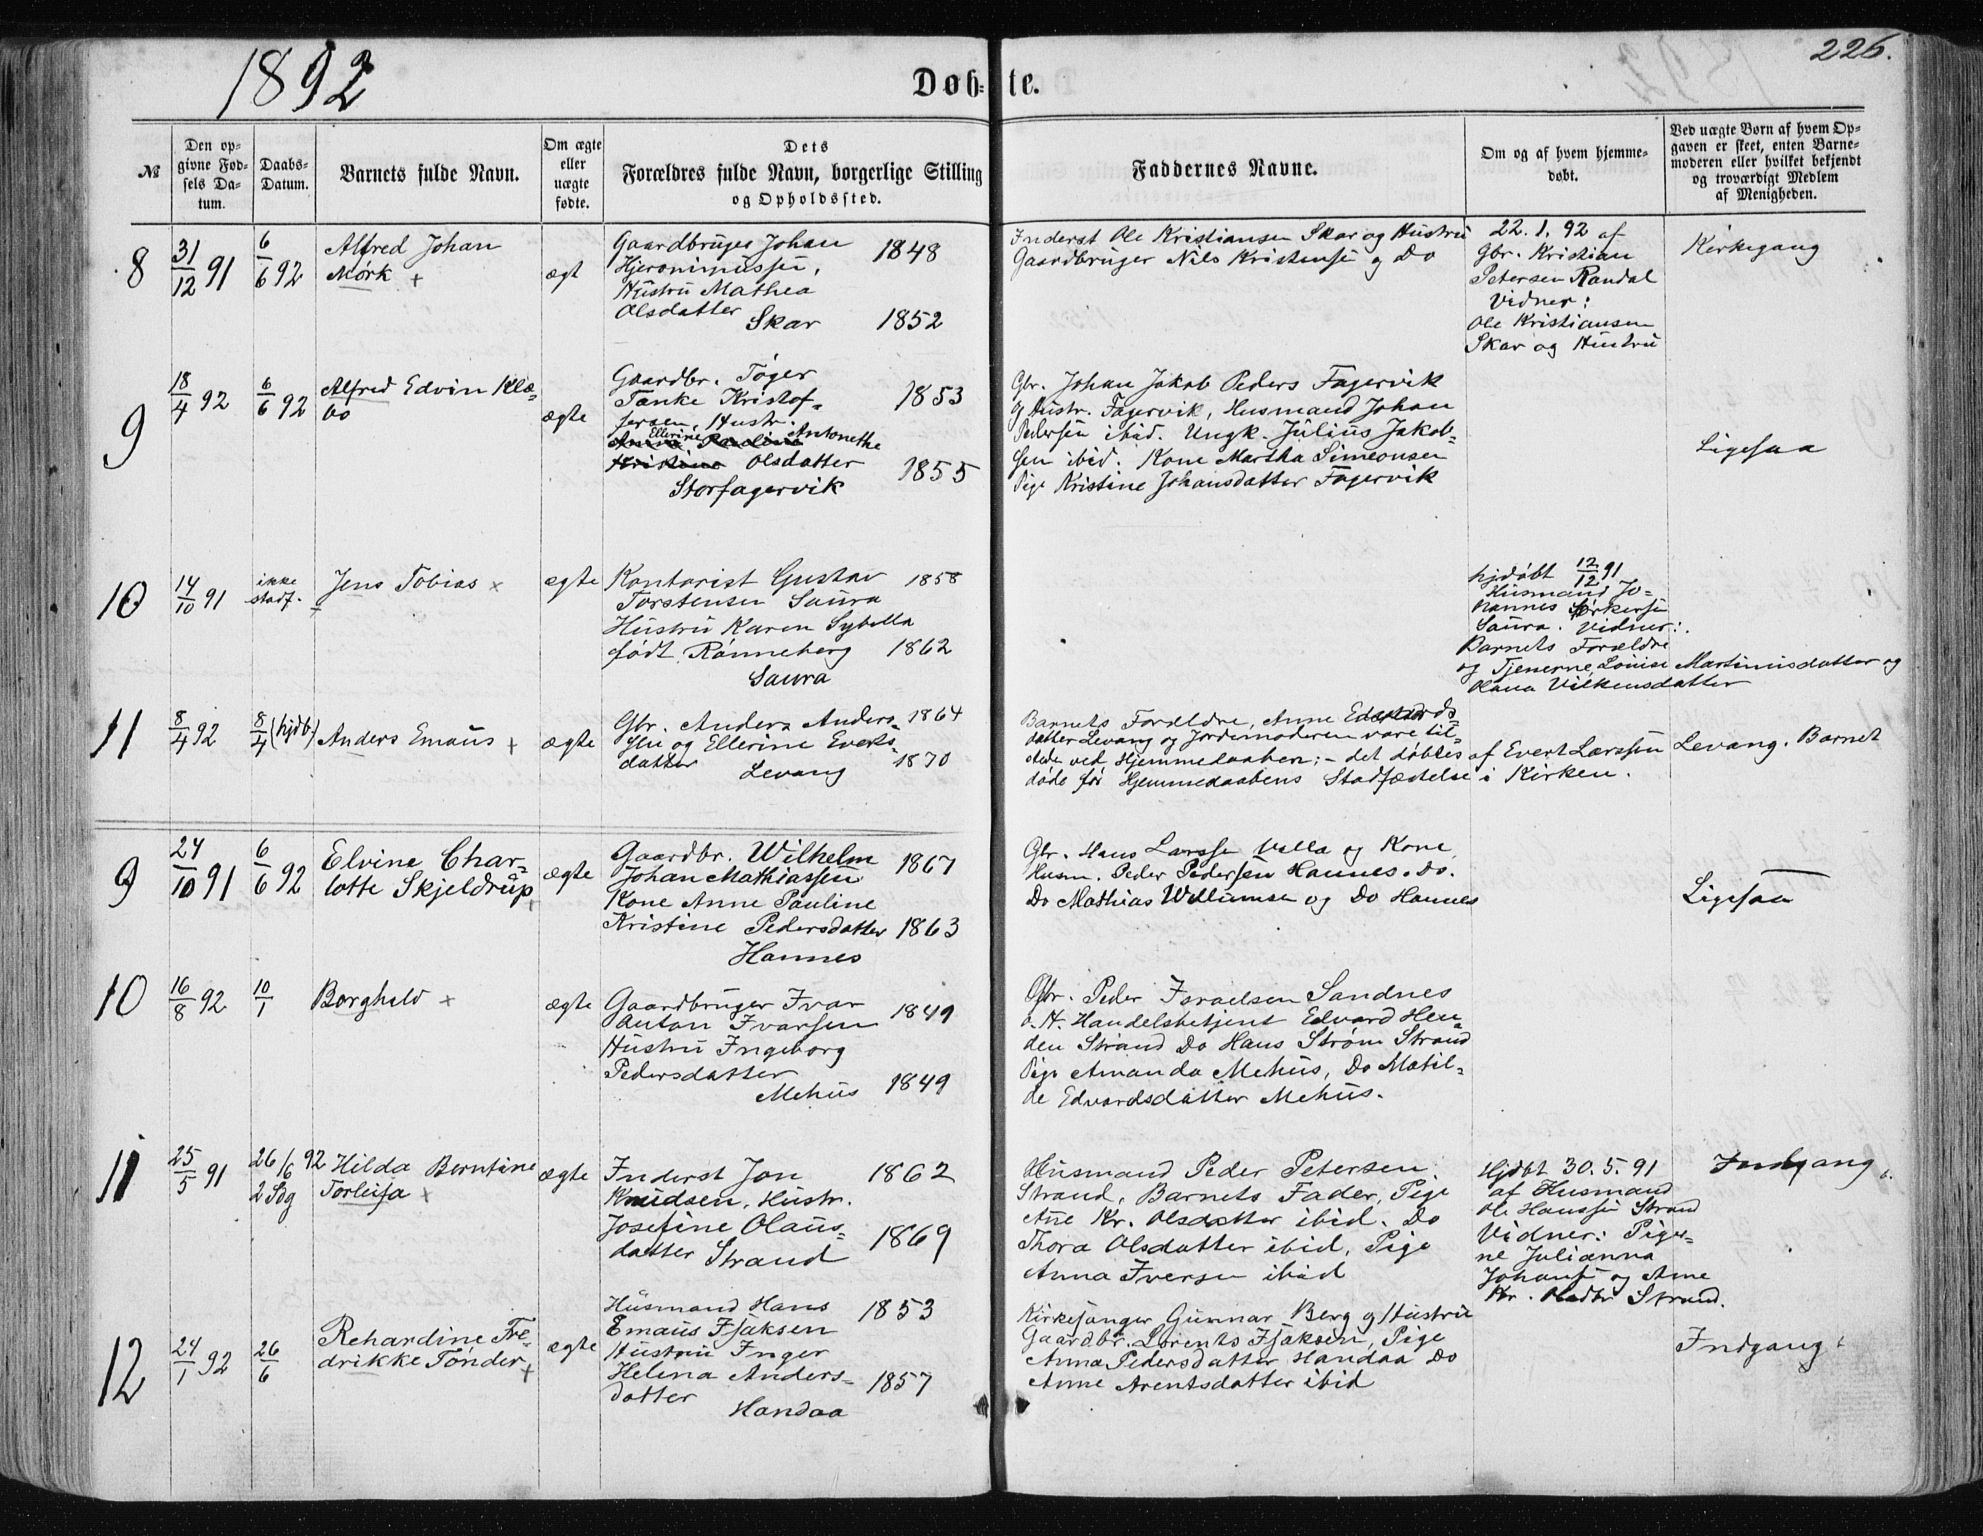 1892
Døb=te.
226.
№
Den op-
givne Fød-
sels Da-
tum.
Daabs-
Datum.
Barnets fulde Navn.
Om ægte
eller
uægte
fødte.
Dets
Forældres fulde Navn, borgerlige Stilling
og Opholdssted.
Faddernes Navne.
Om og af hvem hjemme-
døbt.
Ved uægte Børn af hvem Op-
gaven er skeet, enten Barne-
moderen eller hvilket bekjendt
og troværdigt Medlem
af Menigheden.
8
31/12 91
6/6 92
Alfred Johan
Mørk +
ægt
Gaardbruger Johan 1848
Hjeronimussen,
Hustru Mathea
Olsdatter
Skar 1852
Inderst Ole Kristiansen Skar og Hustru
Gaardbruger Nils Kristensen og Do
22.1.92 af
Gbr. Kristian
Petersen Randal
Vidner:
Ole Kristiansen
Skar og Hustru
Kirkegang
9
18/4 92
6/6 92
Alfred Edvin Klæ-
bo
ægte
Gaardbr. Tøger
Tanke Kristof- 1853
fersen, Hustr.
Anna Pauline Ellerine Antonethe
Kristine Olsdatter 1855
Storfagervik
Gbr. Johan Jakob Peders Fagervik
og Hustr. Fagervik, Husmand Johan
Pedersen ibid. Ungk. Julius Jakob-
sen ibid. Kone Martha Simeonsen
Pige Kristine Johansdatter Fagervik
Ligesaa
10
14/10 91
ikke
stadf.
Jens Tobias x
ægte
Kontorist Gustav 1858
Torstensen Saura
Hustru Karen Sybella
født Rønneberg 1862
Saura
hjdøbt 12/12 91
Husmand Jo-
hannes
Saura. Vidner:
Barnets Forældre
og Tjenerne Louise Martinusdatter og
Olava Vilkensdatter
11
8/4 92
8/4 (hjdb.)
Anders Emaus +
ægte
Gbr. Anders Anders- 1864
sen og Ellerine Everts-
datter 1870
Levang
Barnets Forældre, Anne Edvards-
datter Levang og Jordemoderen vare til-
stede ved Hjemmedaaben; - det døbtes af Evert Larssen Levang. Barnet
døde før Hjemmedaabens Stadfæstelse i Kirken.
9
24/10 91
6/6 92
Elvine Char-
lotte Skjeldrup +
ægte
Gaardbr. Wilhelm 1867
Johan Mathiassen
Kone Anne Pauline
Kristine Pedersdatter 1863
Hannes
Gbr. Hans Larsse Valla og Kone
Husm. Peder Pedersen Hannes. Do.
Do Mathias Willumsen og Do Hannes
Ligesaa
10
16/8 92
10/1
Borghild +
ægte
Gaardbruger Ivar 1849
Anton Ivarsen
Hustru Ingeborg
Pedersdatter
Mehus 1849
Gbr. Peder Israelsen Sandnes
o. H. Handelsbetjent Edvard Hen-
den Strand Do Hans Strøm Strand
Pige Amanda Mehus, Do Matil-
de Edvardsdatter Mehus.
11
25/5 91
26/6 92
2 Søg
Hilda Berntine
Torleifa +
ægte
Inderst Jon 1862
Knudsen, Hustr.
Josefine Olaus-
datter Strand 1869
Husmand Peder Petersen
Strand, Barnets Fader, Pige
Ane Kr. Olsdatter ibid. Do
Thora Olsdatter ibid, Pige
Anna Iversen ibid
Hjdbt 30.5.91
af Husmand
Ole Hanssen Strand
Vidner: Piger-
ne Julianna
Johans og Ane
Kr. Olsdtr Strand.
Indgang
12
24/1 92
26/6
Rehardine Fre-
drikke Tønder +
ægte
Husmand Hans 1853
Emaus Isaksen
Hustru Inger
Helena Anders- 1857
datter
Handaa
Kirkesanger Gunnar Berg og Hustru
Gaardbr. Lorents Isaksen, Pige
Anna Pedersdatter Handaa Do
Anne Arentsdatter ibid
Indgang